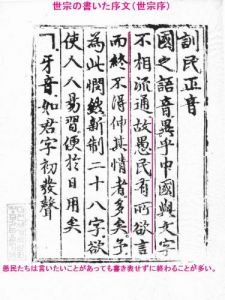 世宗の書いた序文(世宗序)
訓民正音
國之語音異乎中國與文字
不相流通故愚民有所欲言
而終不得伸其情者多矣予
為此憫然新制二十八字欲
使人人易習便於日用矣
ㄱ牙音如君字初發聲
愚民たちは言いたいことがあっても書き表せずに終わることが多い。